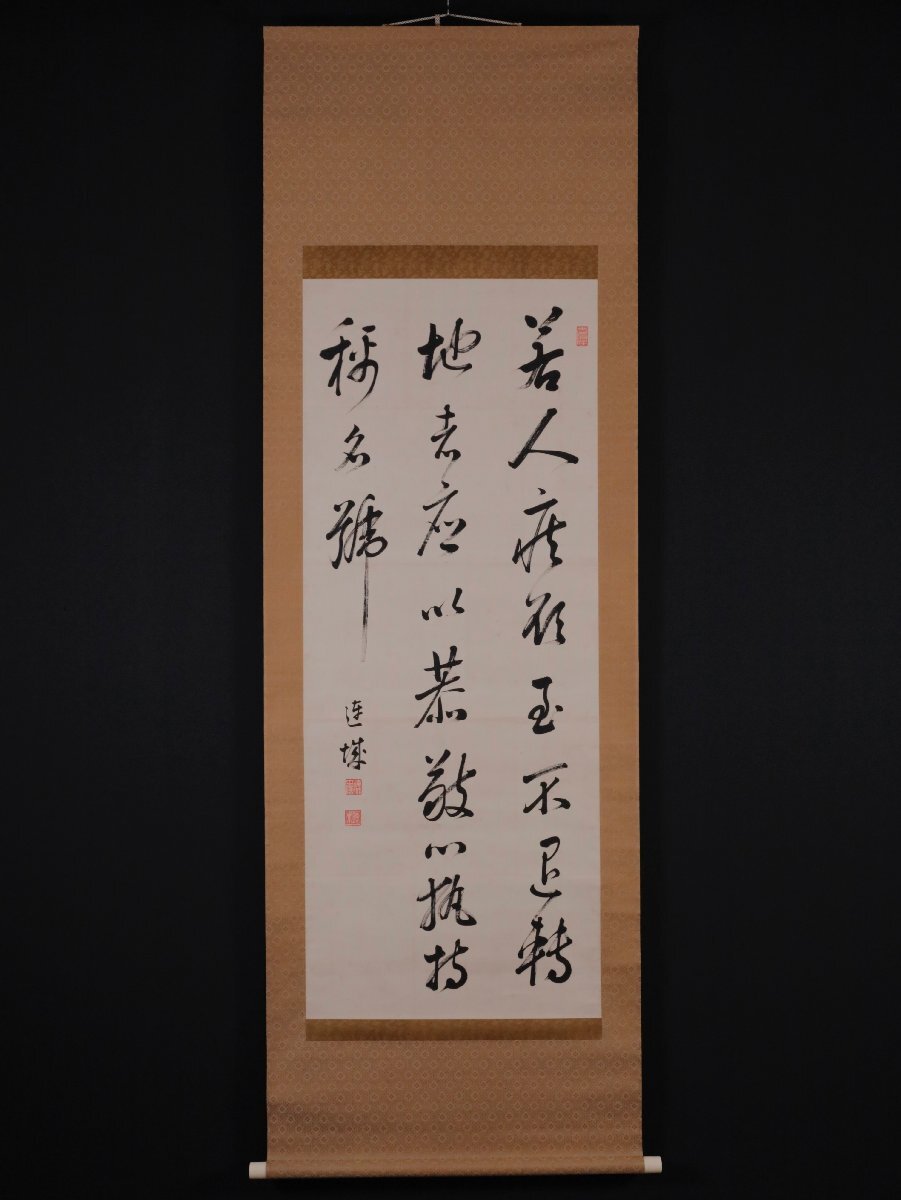 若人疾欲至不退轉
地者應以恭敬心執持
稱名號
連城